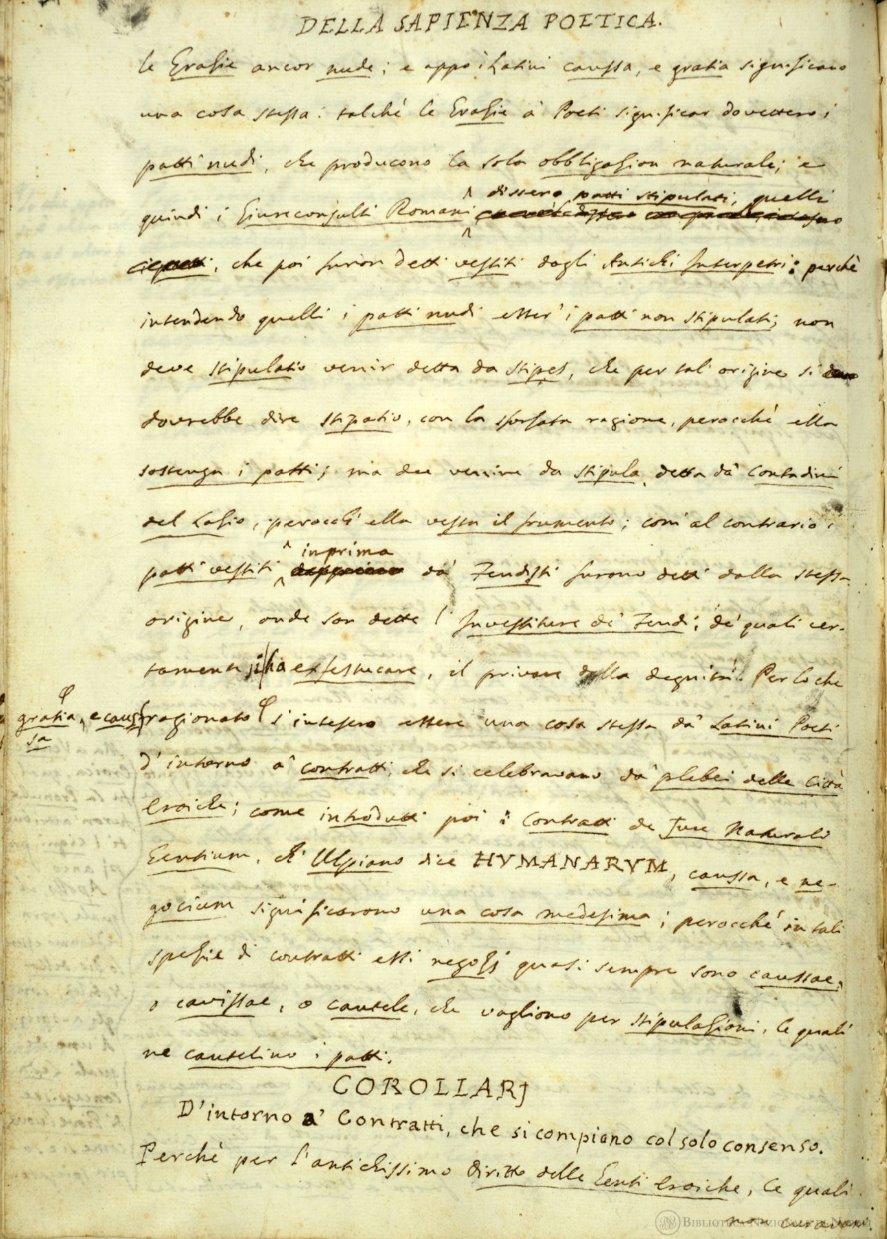 DELLA SAPIENZA POETICA.
le Grazie ancor nude; e appo i Latini caussa, e gratia significano
una cosa stessa: talchè le Grazie a' Poeti significar dovettero i
patti nudi, che producono la sola obbligazion naturale; e
quindi i Giureconsulti Romani dissero patti stipulati, quelli
che poi furon detti vestiti dagli Antichi Interpetri: perchè
intendendo quelli i patti nudi esser' i patti non stipulati, non
deve stipulatio venir detta da stipes, che per tal' origine si
dovrebbe dire stipatio, con la sforzata ragione, perocchè ella
sostenga i patti; ma dee venire da stipula, detta da' Contadini
del Lazio, perocch' ella vesta il frumento; com' al contrario i
patti vestiti inprima da' Feudisti furono detti dalla stessa
origine, onde son dette l' Investiture de' Feudi; de' quali cer-
tamente si ha exfestucare, il privare della degnità. Per lo che
ragionato φ s' intesero essere una cosa stessa da' Latini Poeti
φ
gratia, e caus-
sa
d' intorno a' contratti, che si celebravano da' plebei delle Città
Eroiche; come introdutti poi i Contratti de Jure Naturali
Gentium, ch' Ulpiano dice HVMANARVM, caussa, e ne-
gocium significarono una cosa medesima; perocchè in tali
spezie di contratti essi negozj quasi sempre sono caussae,
o cavissae, o cautele, che vagliono per stipulazioni, le quali
ne cautelino i patti.
COROLLARJ
D'intorno a' Contratti, che si compiono col solo consenso.
Perchè per l' antichissimo diritto delle Genti Eroiche, le quali
non curavan